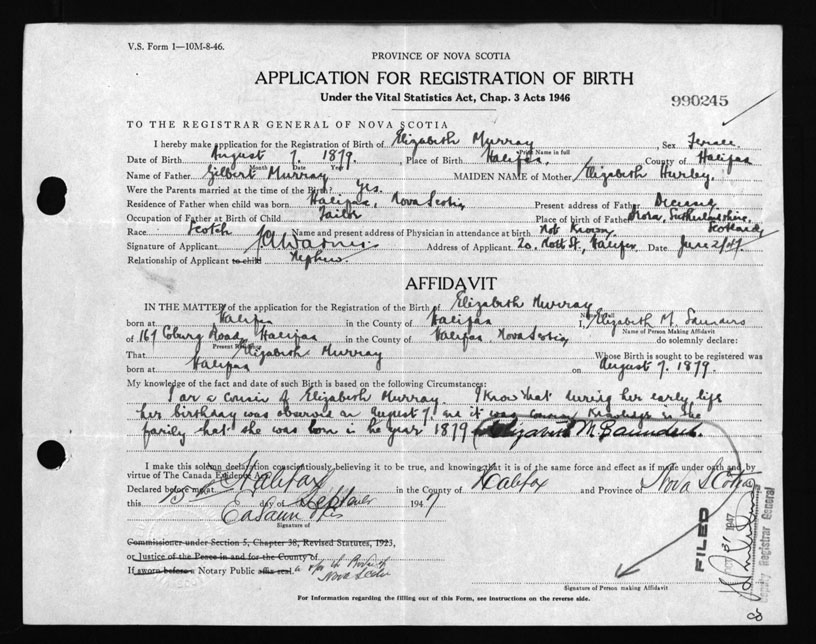 V.S. Form 1—10M-8-46.
PROVINCE OF NOVA SCOTIA
APPLICATION FOR REGISTRATION OF BIRTH
Under the Vital Statistics Act, Chap. 3 Acts 1946
990245
TO THE REGISTRAR GENERAL OF NOVA SCOTIA
I hereby make application for the Registration of Birth of Elizabeth Murray Sex Female
Print Name in full
Date of Birth August 7. 1879. Place of Birth Halifax. County of Halifax
Month Date Year
Name of Father Gilbert Murray MAIDEN NAME of Mother Elizabeth Hurley.
Were the Parents married at the time of the Birth? Yes.
Residence of Father when child was born Halifax, Nova Scotia Present address of Father Deceased
Occupation of Father at Birth of Child Tailor Place of birth of Father Sutherlandshire, Scotland
Race Scotch Name and present address of Physician in attendance at birth Not Known
Signature of Applicant Address of Applicant 20. St., Halifax Date June 2/47.
Relationship of Applicant to child Nephew.
AFFIDAVIT
IN THE MATTER of the application for the Registration of the Birth of Elizabeth Murray
born at Halifax in the County of Halifax I, Elizabeth M. Saunders
Name of Person Making Affidavit
of 167 Coburg Road, Halifax in the County of Halifax, Nova Scotia do solemnly declare:
Present Residence
That Elizabeth Murray Whose Birth is sought to be registered was
born at Halifax on August 7. 1879.
My knowledge of the fact and date of such Birth is based on the following Circumstances:
I am a cousin of Elizabeth Murray. I know that during her early life
her birthday was observed on August 7. and it was common knowledge in the
family that she was born in the year 1879 Elizabeth M. Saunders.
I make this solemn declaration conscientiously believing it to be true, and knowing that it is of the same force and effect as if made under oath and by
virtue of The Canada Evidence Act.
Declared before me at Halifax in the County of Halifax and Province of Nova Scotia
this 15 day of September 1947
Signature of
Commissioner under Section 5, Chapter 38, Revised Statutes, 1923,
or Justice of the Peace in and for the County of
If sworn before a Notary Public affix seal. a n/p for the Province of
Nova Scotia
FILED
OCT 31 1947
Deputy Registrar General
Signature of Person making Affidavit
For Information regarding the filling out of this Form, see instructions on the reverse side.